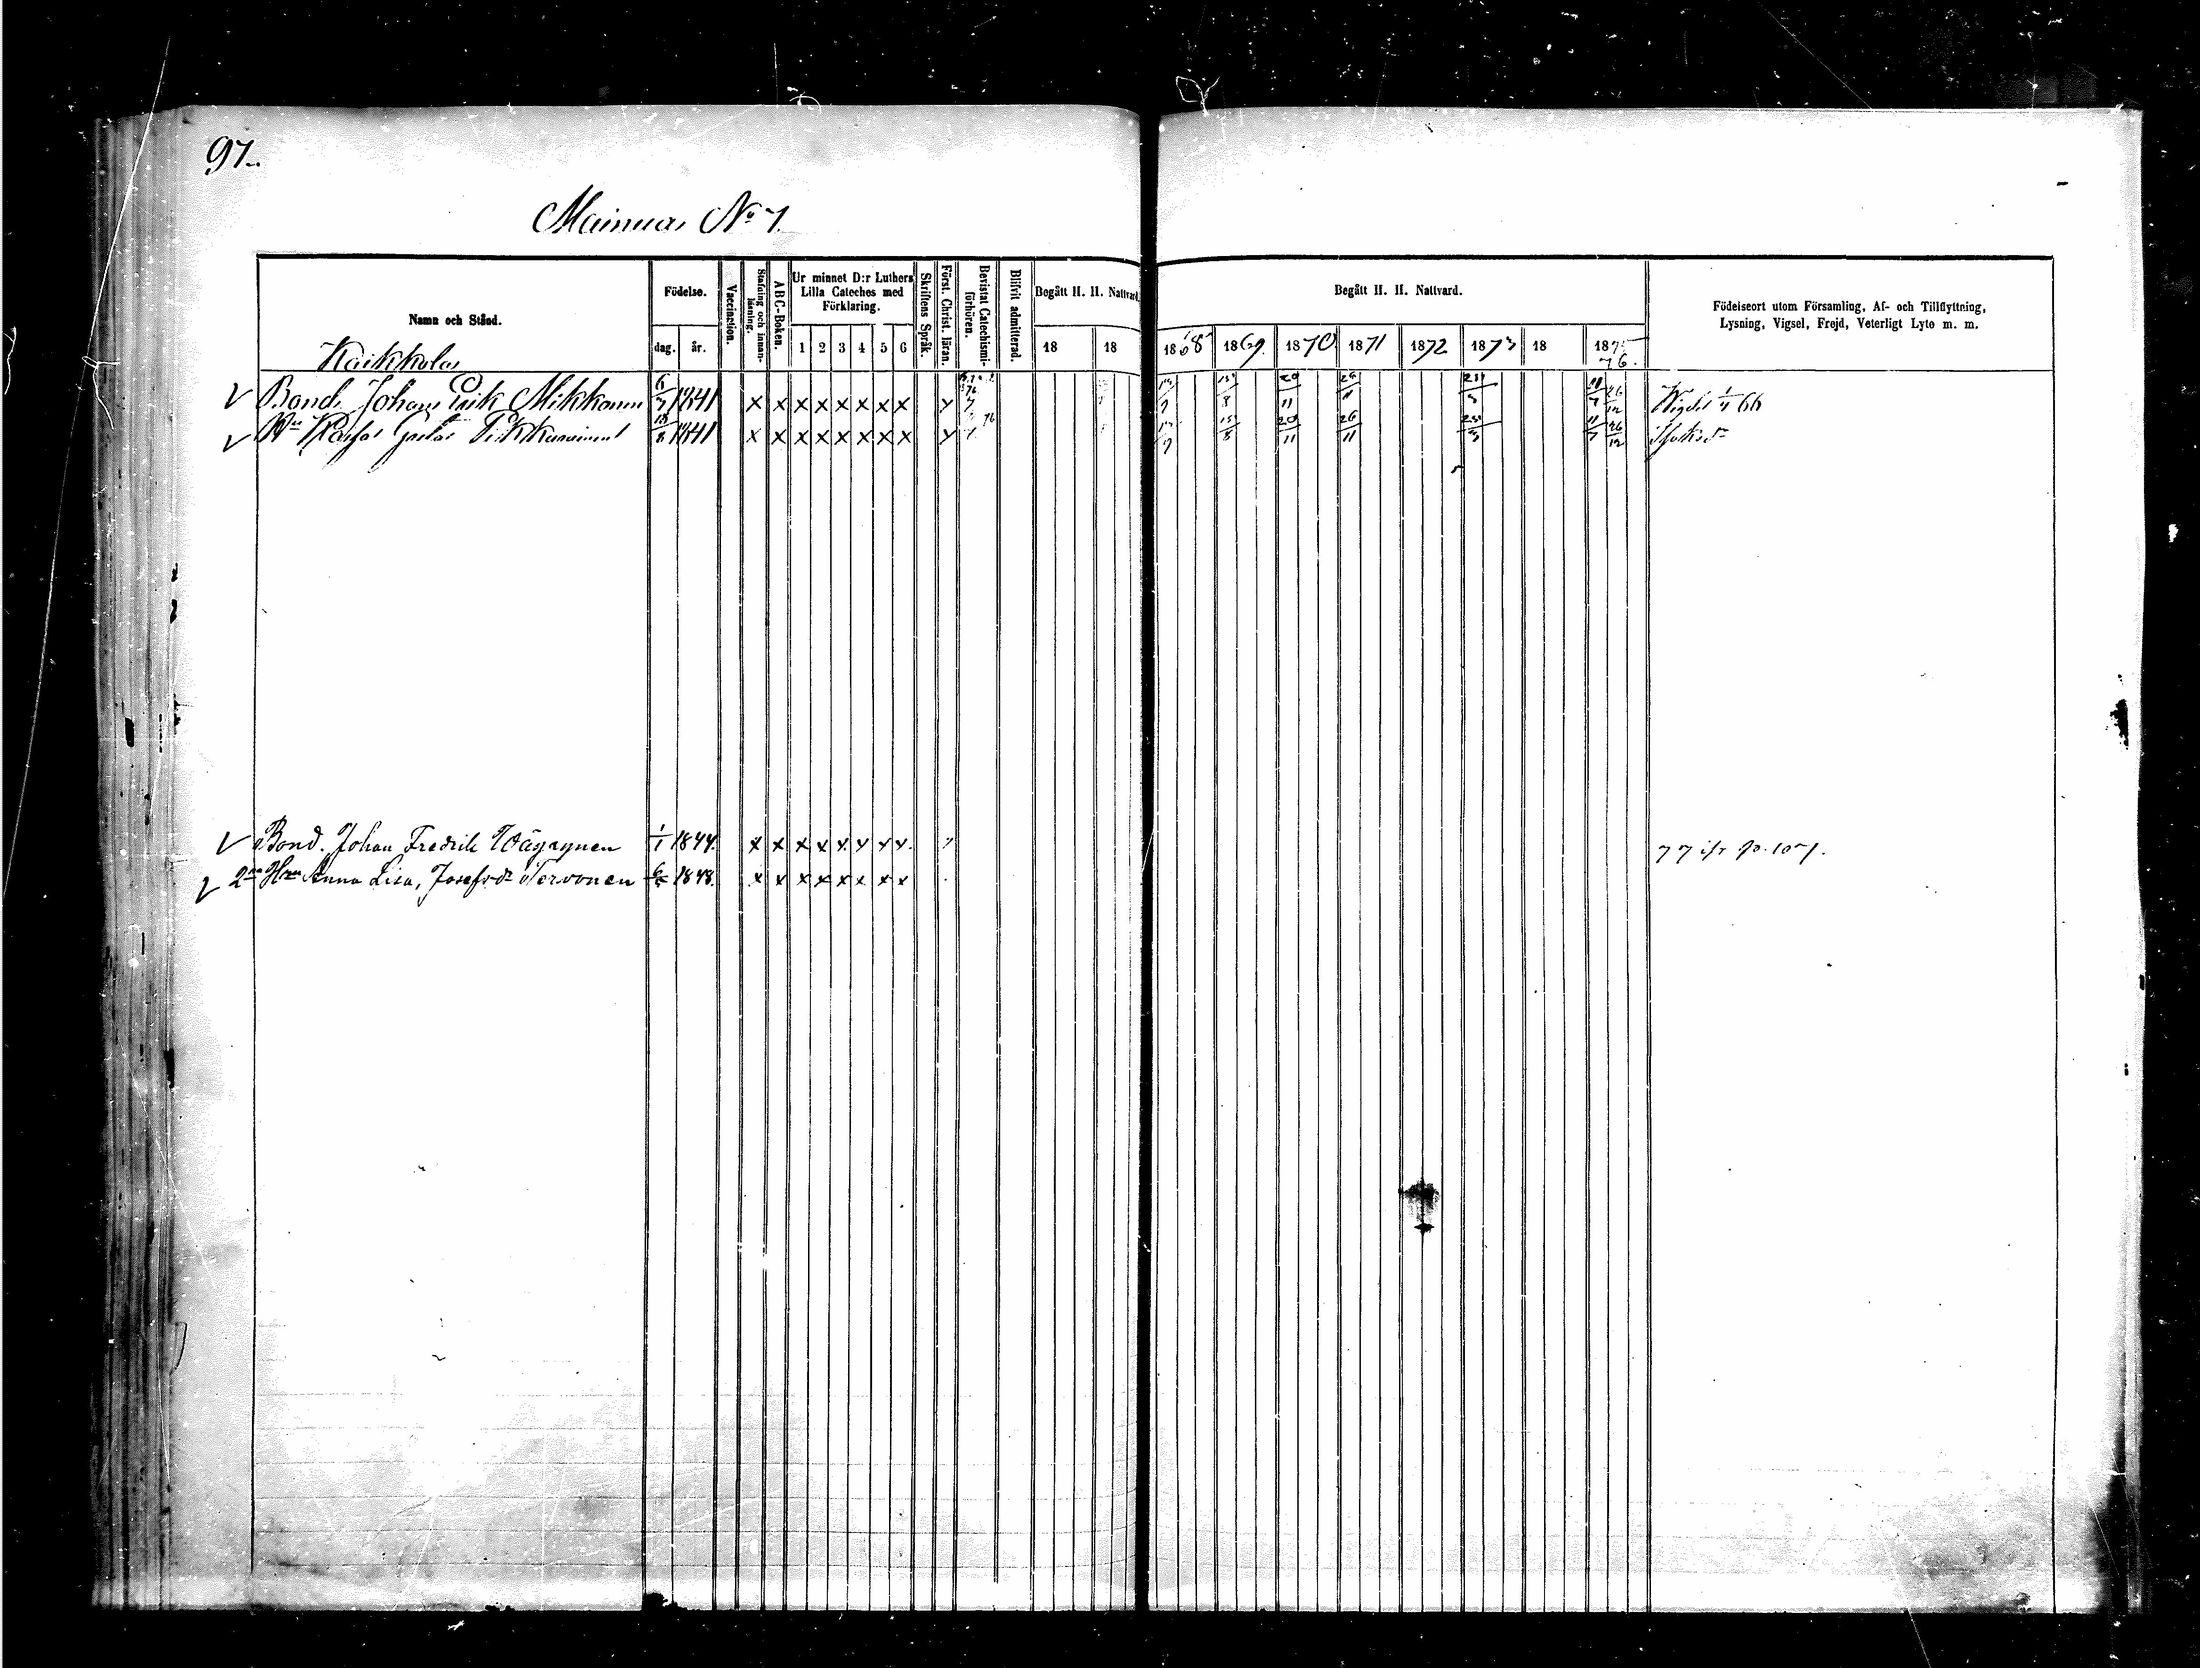 97.
Mainua, No 7.
Namn och Stånd.
Födelse.
dag.
år.
Vaccination.
Stafning och innan-läsning.
ABC-Boken.
Ur minnet D:r Luthers Lilla Cateches med Förklaring.
1 2 3 4 5 6
Skriftens Språk.
Först. Christ. läran.
Bevistat Catechismi-förhören.
Blifvit admitterad.
Begått H. H. Nattvard.
18 18
Begått H. H. Nattvard.
1868 1869. 1870 1871 1872 1873 18 1875
76.
Födelseort utom Församling, Af- och Tillflyttning, Lysning, Vigsel, Frejd, Veterligt Lyte m. m.
Kaikkola
Bond. Johan Erik Mikkonen 6/7 1841 x x x x x x x x x 15/8 20/11 26/11 11/7 26/12 Vigde 1/4 66
Hu Kaisa Gretas 1841 x x x x x x x x x 15/8 20/11 26/11 11/7 26/12
Bond. Johan Fredrik Wäyrynen 1/1 1844. x x x x x x x x 77 ifr p. 107.
2n Hu Anna Lisa, Josefsdr Nervonen 1848. x x x x x x x x